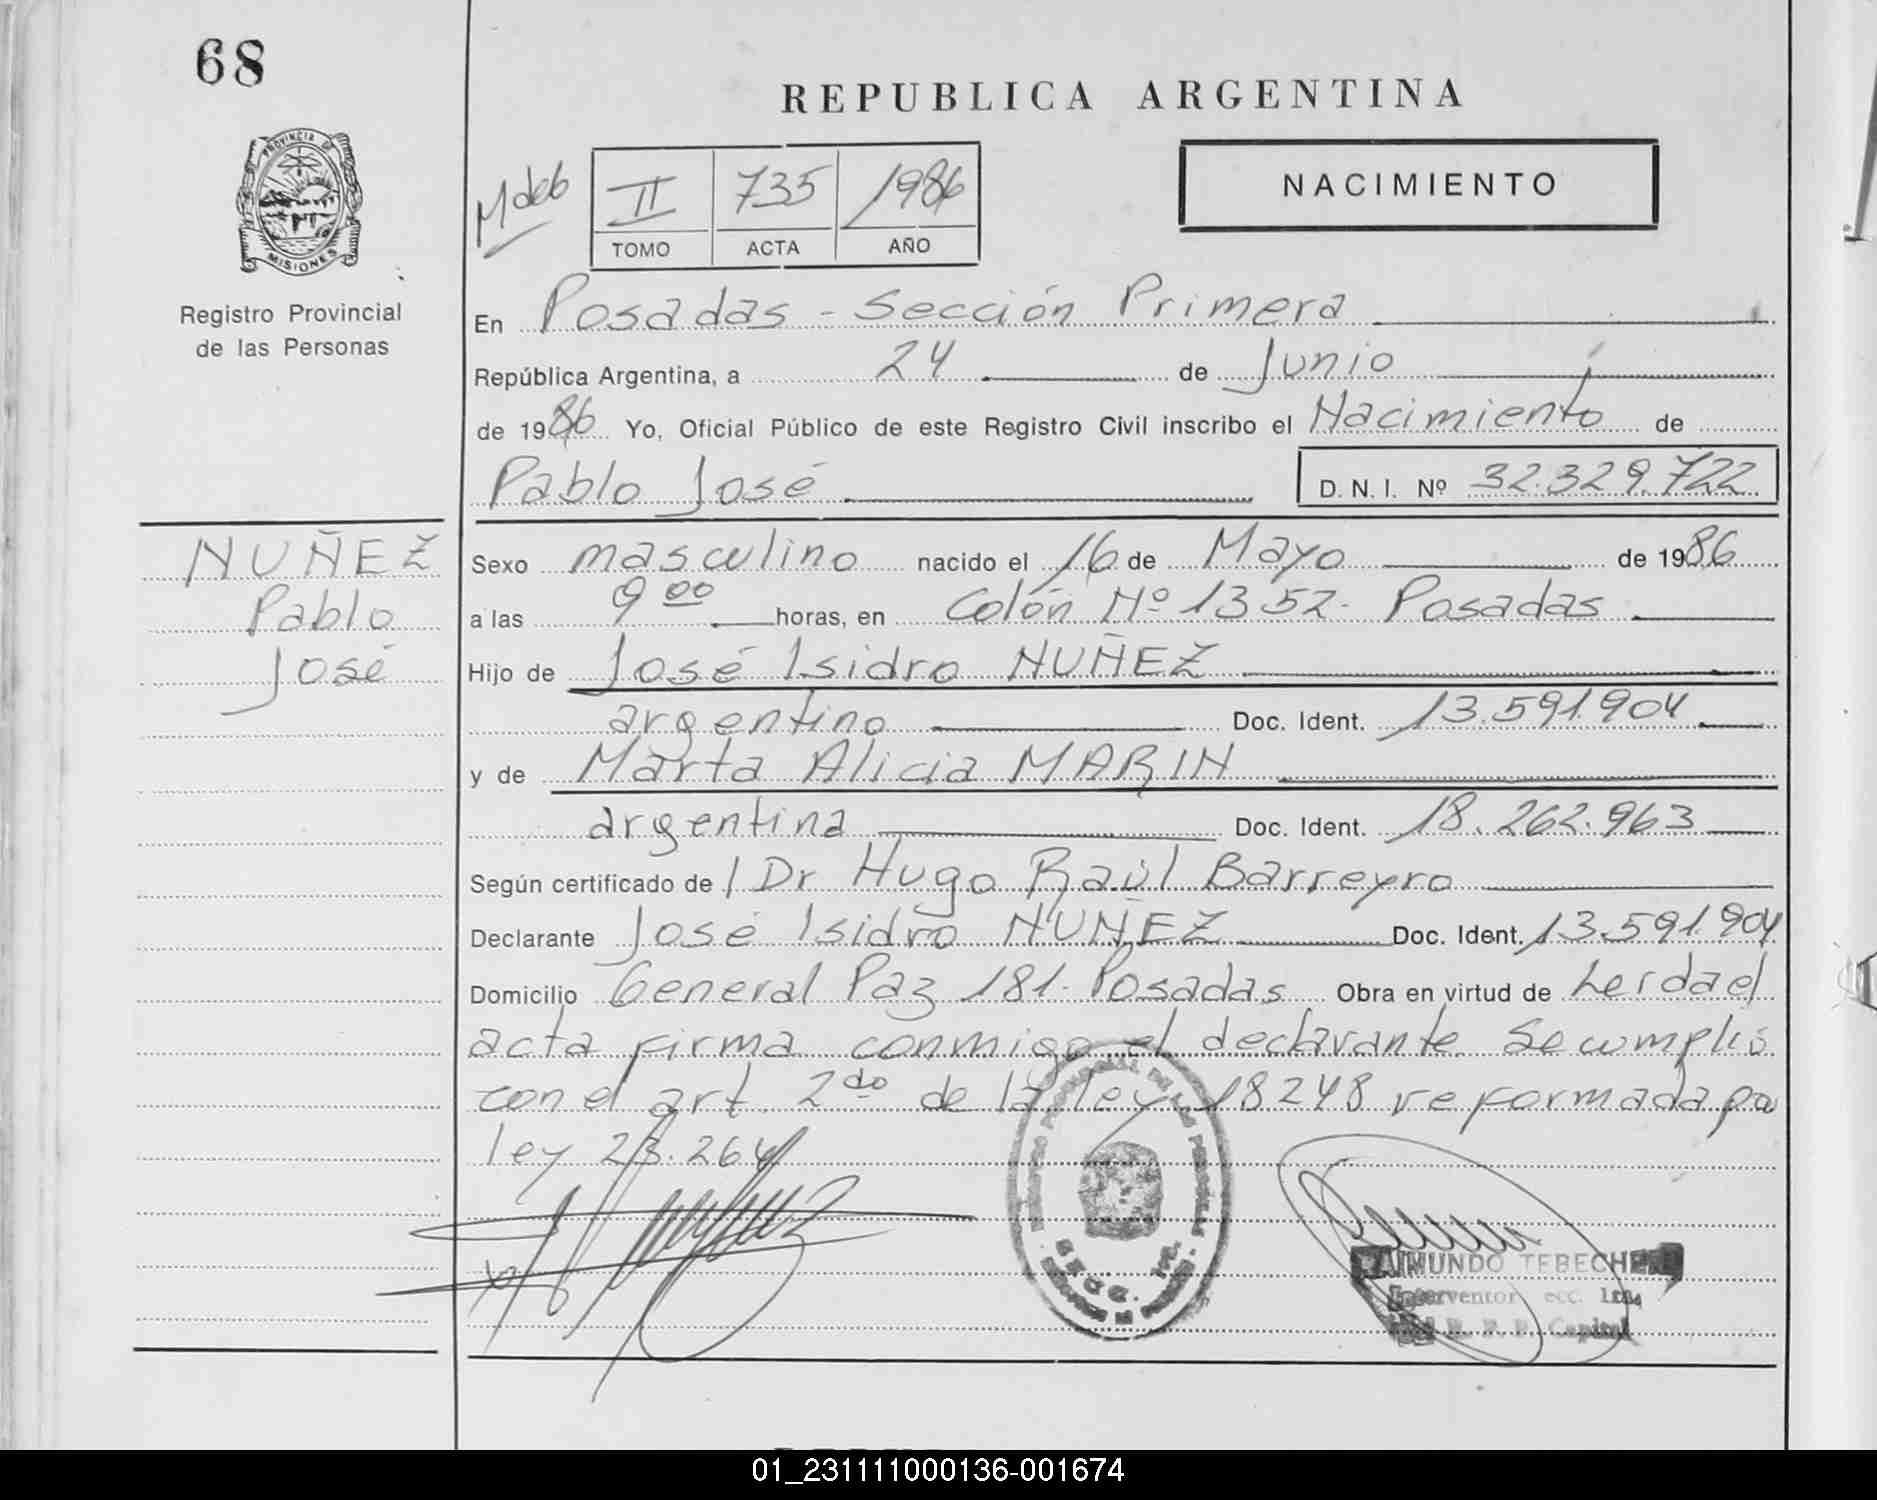 68
REPUBLICA ARGENTINA
PROVINCIA DE
MISIONES
Registro Provincial
de las Personas
II 735 1986
TOMO ACTA AÑO
NACIMIENTO
En Posadas - Sección Primera
República Argentina, a 24 de Junio
de 1986 Yo, Oficial Público de este Registro Civil inscribo el Nacimiento de
Pablo José D.N.I. Nº 32.329.722
NUÑEZ
Pablo
José
Sexo masculino nacido el 16 de Mayo de 1986
a las 9 00 horas, en Colón Nº 1352 - Posadas
Hijo de José Isidro NUÑEZ
argentino Doc. Ident. 13.591.904
y de Marta Alicia MARIN
argentina Doc. Ident. 18.262.963
Según certificado de / Dr Hugo Raúl Barreyro
Declarante José Isidro NUÑEZ Doc. Ident. 13.591.904
Domicilio General Paz 181 - Posadas Obra en virtud de Leida el
acta firma conmigo el declarante Se cumplió
con el art. 2do de la ley 18248 reformada por
ley 23.264
RAIMUNDO TEBECHE
Interventor
Capital
01_231111000136-001674